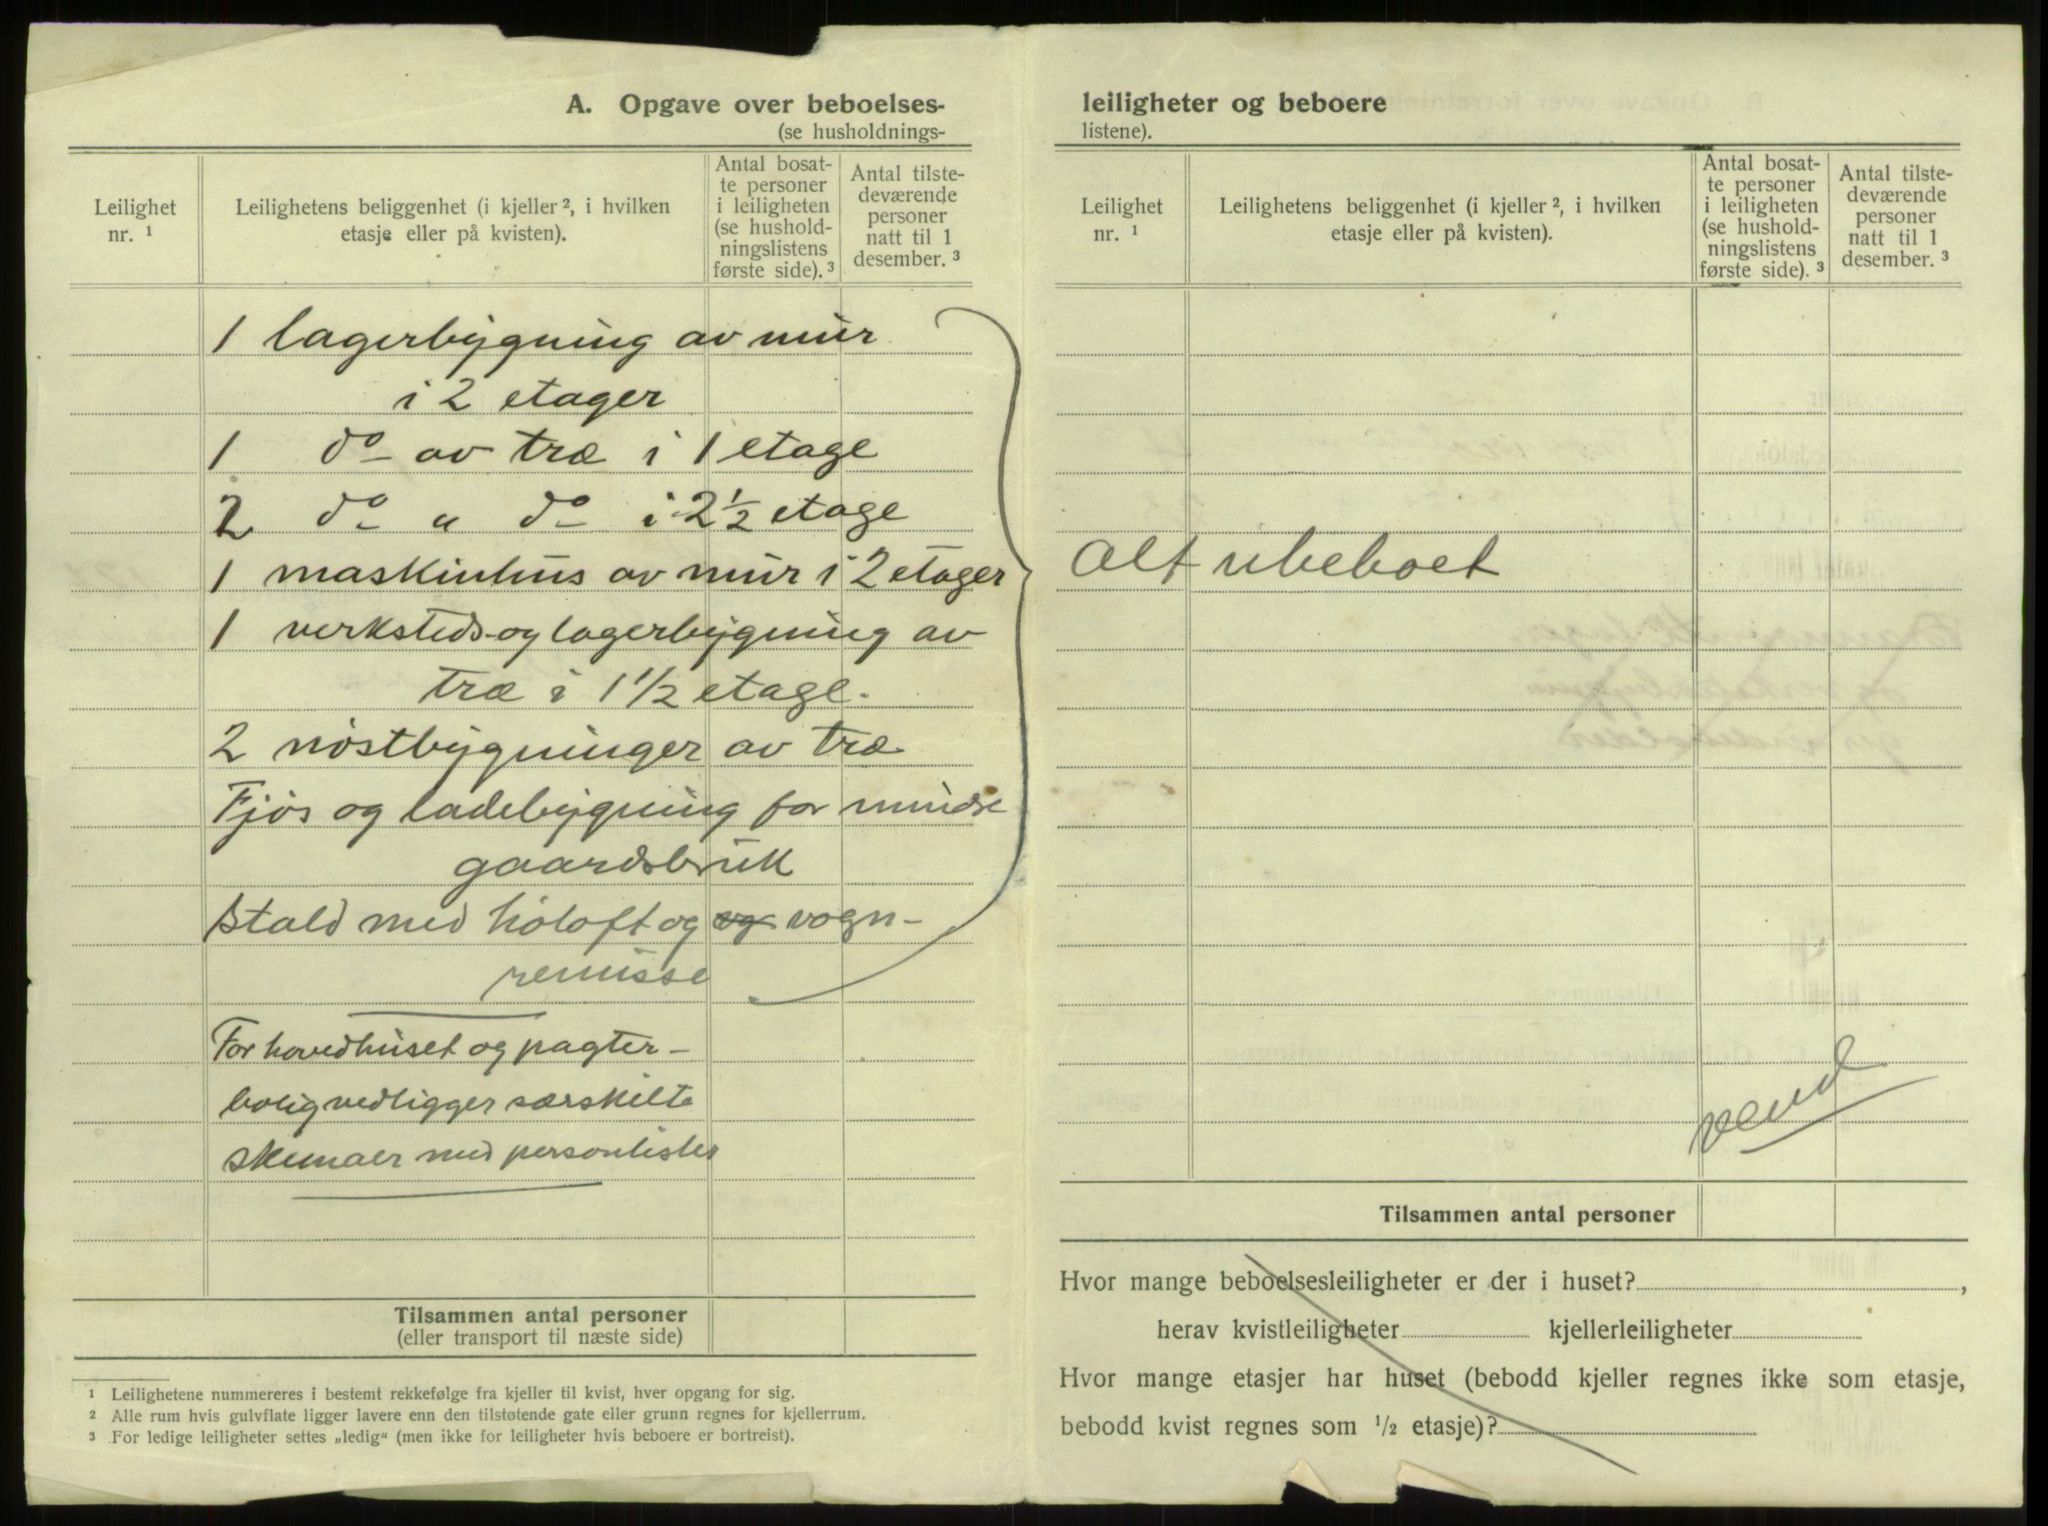 A. Opgave over beboelses-
(se husholdnings-
Leilighet nr. ¹
Leilighetens beliggenhet (i kjeller ², i hvilken
etasje eller på kvisten).
Antal bosat-
te personer
i leiligheten
(se hushold-
ningslistens
første side). ³
Antal tilste-
deværende
personer
natt til 1
desember. ³
1 lagerbygning av mur
i 2 etager
1 do av træ i 1 etage
2 do " do i 2½ etage
1 maskinhus av mur i 2 etager
1 verksteds-og lagerbygning av
træ i 1 1/2 etage.
2 nøstbygninger av træ
Fjøs og ladebygning for mindre
gaardsbruk
Stald med høloft og og vogn-
remisse
For hovedhuset og pagter-
bolig vedligger særskilte
skemaer med personlister
Tilsammen antal personer
(eller transport til næste side)
¹ Leilighetene nummereres i bestemt rekkefølge fra kjeller til kvist, hver opgang for sig.
² Alle rum hvis gulvflate ligger lavere enn den tilstøtende gate eller grunn regnes for kjellerrum.
³ For ledige leiligheter settes „ledig“ (men ikke for leiligheter hvis beboere er bortreist).
leiligheter og beboere
listene).
Leilighet nr. ¹
Leilighetens beliggenhet (i kjeller ², i hvilken
etasje eller på kvisten).
Antal bosat-
te personer
i leiligheten
(se hushold-
ningslistens
første side). ³
Antal tilste-
deværende
personer
natt til 1
desember. ³
alt ubeboet
vend
Tilsammen antal personer
Hvor mange beboelsesleiligheter er der i huset?,
herav kvistleiligheter kjellerleiligheter
Hvor mange etasjer har huset (bebodd kjeller regnes ikke som etasje,
bebodd kvist regnes som ½ etasje)?